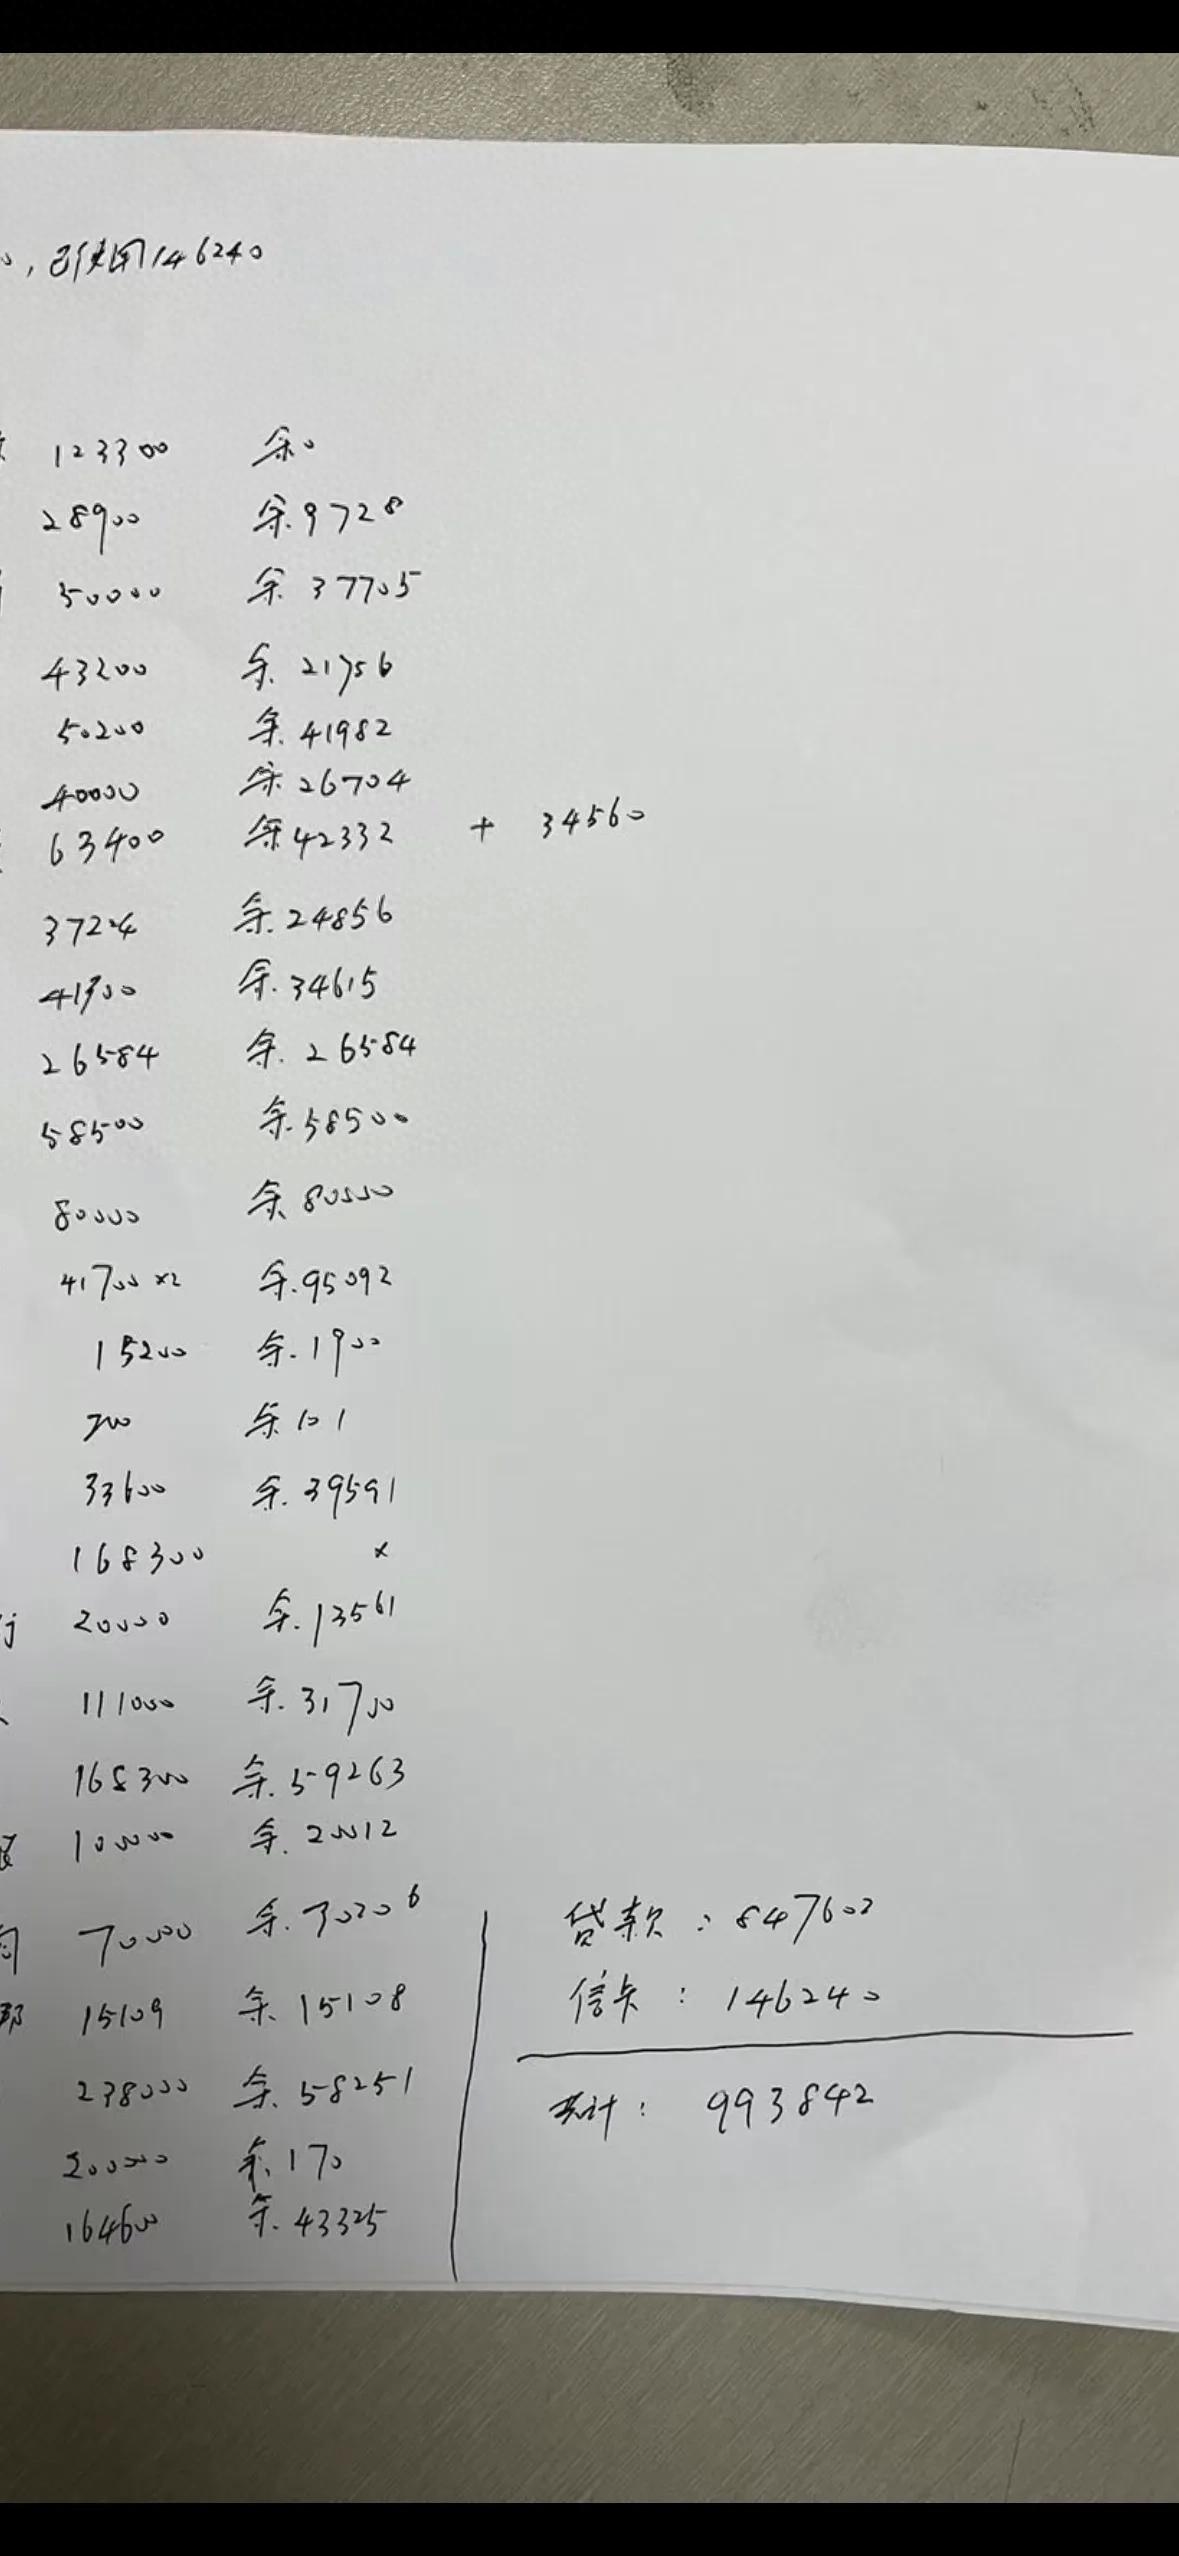 ，已使用146240
123300 余0
28900 余.9728
50000 余.37705
43200 余.21756
50200 余.41982
40000 余.26704
63400 余42332 + 34560
37224 余.24856
41900 余.34615
26584 余.26584
58500 余.58500
80000 余80000
41700×2 余.95092
15200 余.1900
700 余101
33600 余.39591
168300 ×
行 20000 余.13561
111000 余.31700
168300 余.59263
100000 余.20012
70000 余.70206
15109 余.15108
238000 余.58251
200000 余.170
164600 余.43325
贷款：847602
信卡：146240
共计：993842